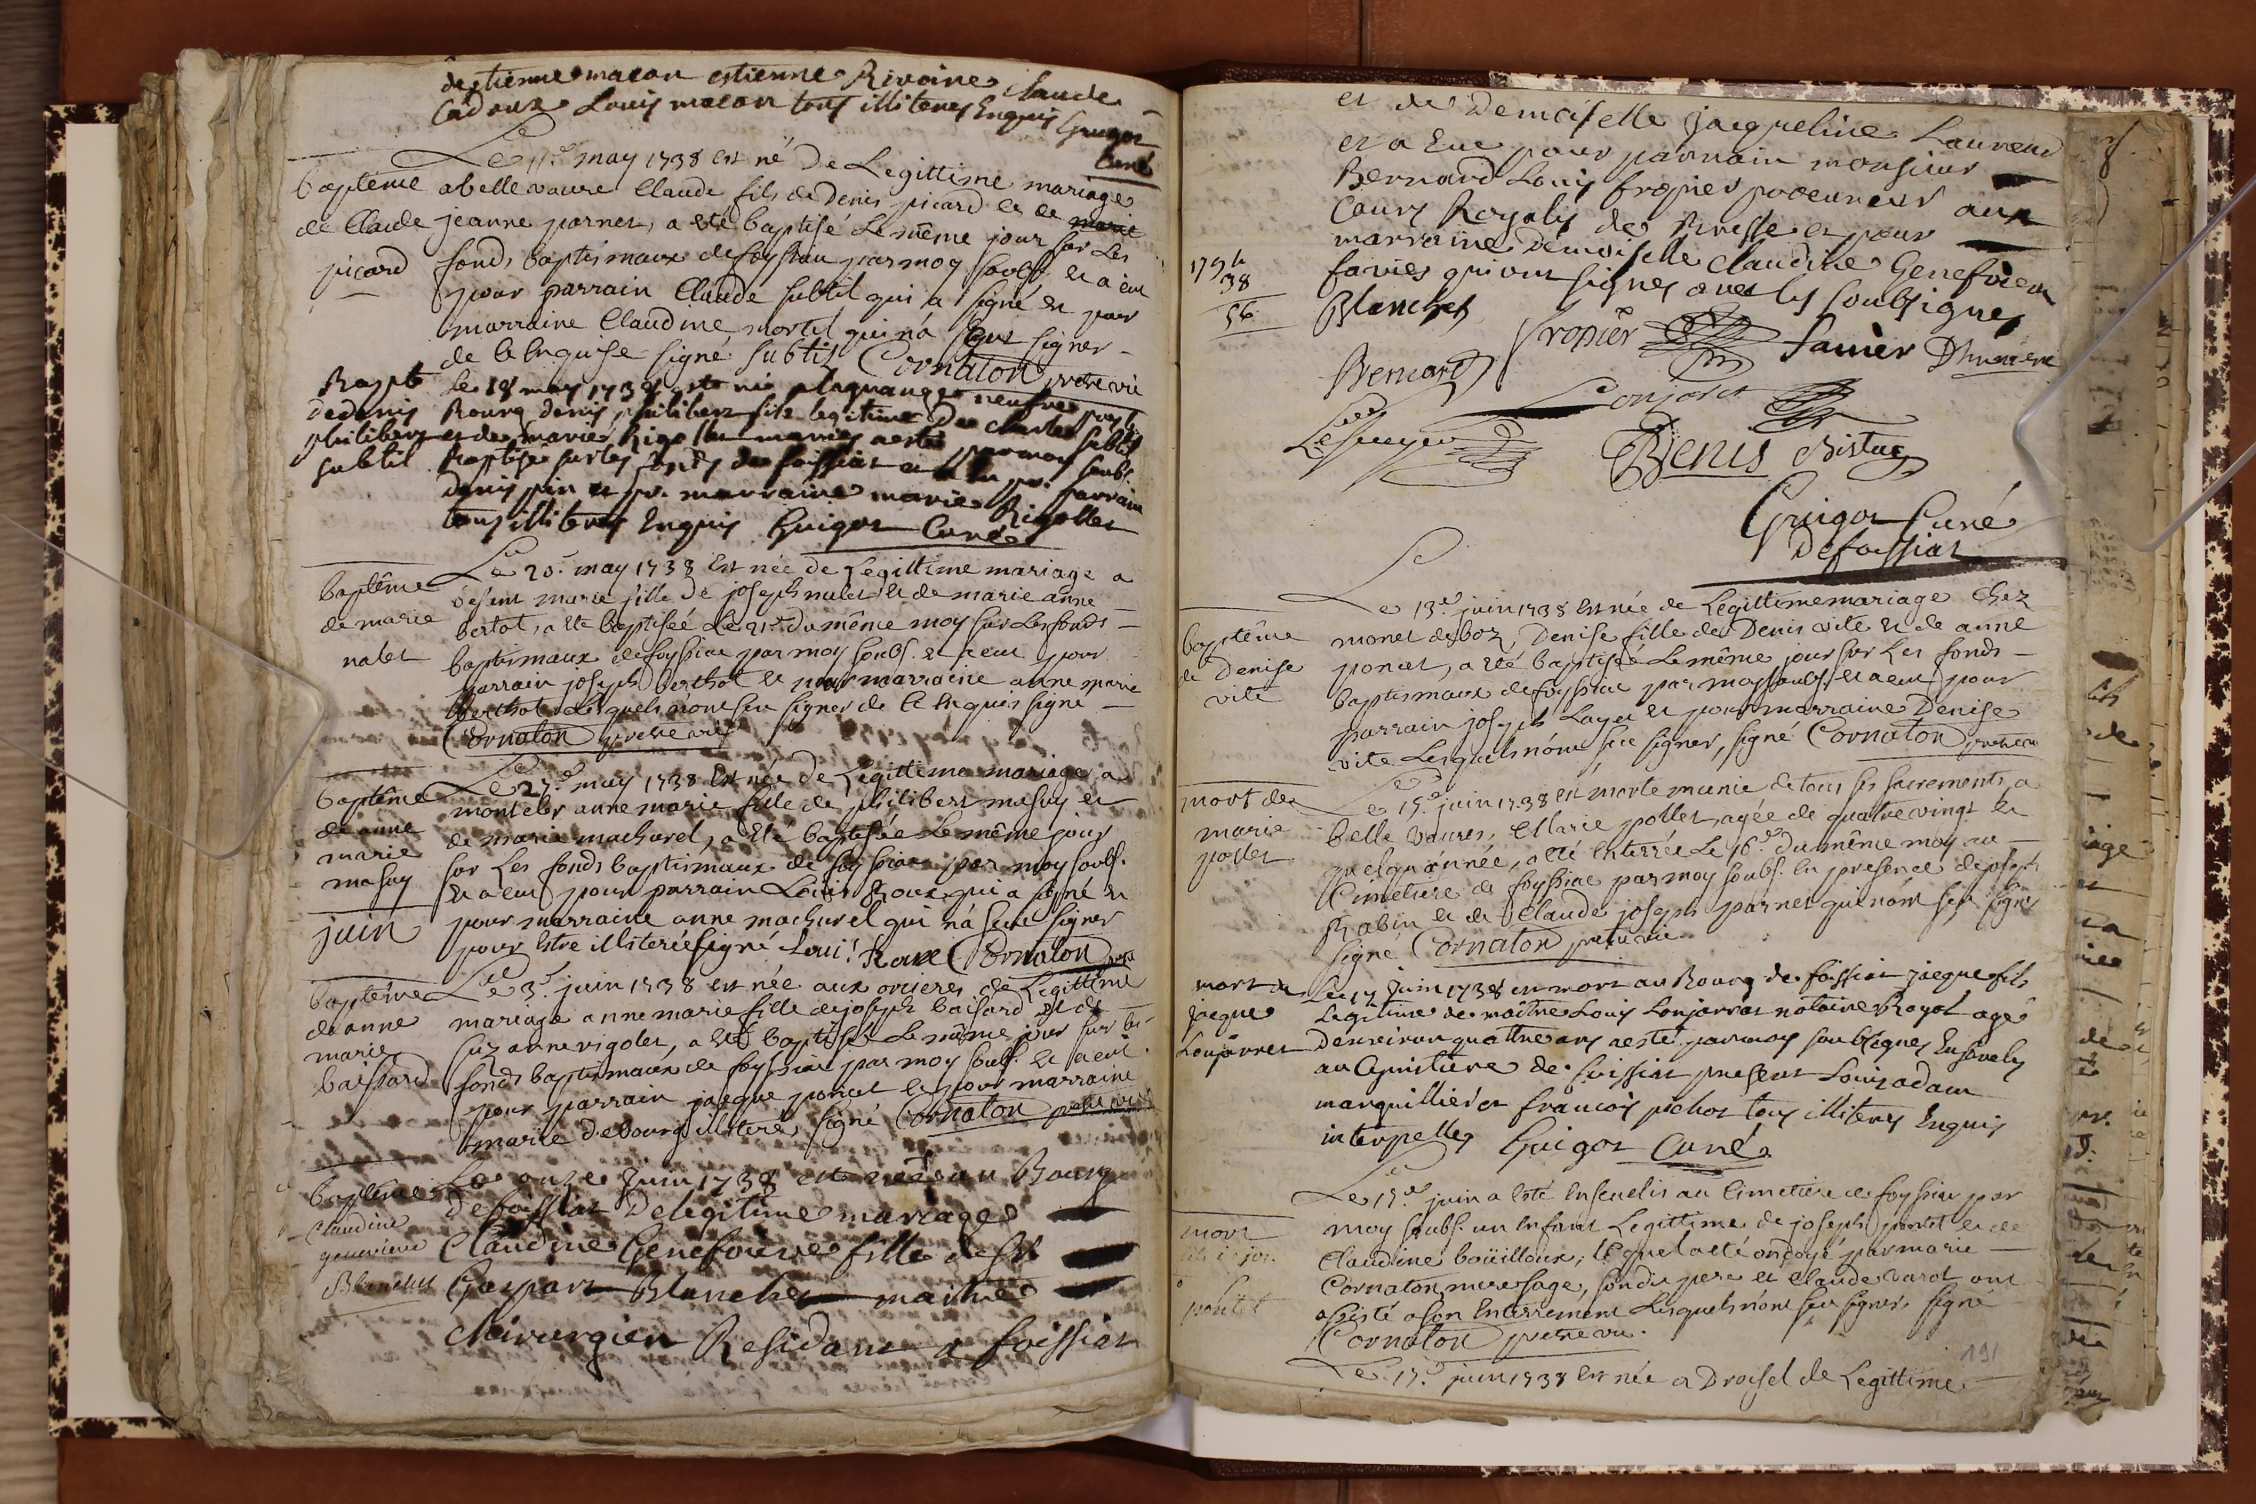 destienne macon estienne Rivoire Claude
Cadoux Louis macon tous illiteres Enquis Guigot
Curé
baptême
de Claude
picard
Le 11e may 1738 est né de Legittime mariage
a bellevavre Claude fils de Denis picard et de marie
jeanne parnet, a eté baptisé Le même jour sur Les
fonds baptismaux de foyssia par moy soubs. et a eut
pour parrain Claude subtil qui a signé et pour
marraine Claudine mortel qui n'a sçeut signer
de ce Enquise signé subtil Cornaton pretre vic
Bapte
de denis
philibert
subtil
le 18 may 1738 est né
Bourg denis philibert fils legitime De charles subtil
et de marie Rigollet maries a esté par moy soubs.
Baptise sur les fonds de foissiat a eu pr. parrain
denis pin et pr. marraine marie Rigollet
tous illiteres Enquis Guigot Curé
baptême
de marie
nalet
Le 20e may 1738 Est née de Legittime mariage a
marie fille de joseph nalet et de marie anne
bertot, a eté baptisée Le 21e du même moy sur Les fonds
baptismaux de foyssia par moy soubs. et a eut pour
parrain joseph berthot et pour marraine anne marie
berthot Lesquels n'ont sçu signer de ce Enquis signé
Cornaton pretre vic
baptême
de anne
marie
masuy
Le 27e may 1738 Est née de Legittime mariage a
montcler anne marie fille de philibert masuy et
de marie machurel, a eté baptisée Le même jour
sur Les fonds baptismaux de foyssia par moy soubs.
et a eut pour parrain Louis Roux qui a signé et
pour marraine anne machurel qui n'a sçeut signer
pour Estre illiterée signé Loui Roux Cornaton
juin
baptême
de anne
marie
baisard
Le 3e juin 1738 est née aux orcieres de Legittime
mariage anne marie fille de joseph baisard et de
suzanne rigolet, a eté baptisée Le même jour sur les
fonds baptismaux de foyssia par moy soubs. et a eut
pour parrain jacque poncet et pour marraine
marie debourg illiterés signé Cornaton pretre vic
baptême
Claudine
genevieve
Blanchet
Le onze Juin 1738 est née au Bourg
de foissiat De legitime mariage
Claudine Genefvieve fille de Sr
Gaspart Blanchet maitre
chirurgien Residant a foissiat
et de Demoiselle jacqueline Laurend
et a Eue pour parrain monsieur
Bernard Louis fropier procureur aux
Cours Royales de Bresse et pour
marraine Demoiselle Claudine Genefvieve
favier qui ont signes avec les soubsignes
1794
38
56
Blanchet
fropier
favier
Bernard
Lonjarret
Denis
Guigot Curé
de foissiat
baptême
de Denise
vite
Le 13e juin 1738 Est née de Legittime mariage Chez
monet de boz, Denise fille de Denis vite et de anne
poncet, a eté baptisée Le même jour sur Les fonds
baptismaux de foyssia par moy soubs. et a eut pour
parrain joseph Layer et pour marraine Denise
vite Lesquels n'ont sçu signer, signé Cornaton pretre vic
mort de
marie
pollet
Le 15e juin 1738 est morte munie de tous ses sacrements, a
belle vavres, Marie pollet, agée de quatre vingt et
quelqu'année, a eté Enterrée Le 16e du même moy au
Cimetiere de foyssia par moy soubs. En presence de joseph
Rabin et de Claude joseph parnet qui n'ont sçu signer
signé Cornaton pretre vic
mort de
jacque
Lonjarret
Le 17 Juin 1738 est mort au Bourg de foissiat jacque fils
Legitime de maitre Louis Lonjarret notaire Royal agé
Denviron quattre ans a esté par moy soubsignes Enseveli
au Cimetiere de foissiat present Louis adam
marguillier et francois pichot tous illiteres Enquis
interpelles Guigot Curé
mort
pontet
Le 15e juin a Esté Ensevelis au Cimetiere de foyssia par
moy soubs. un Enfant Legittime de joseph pontet et de
Claudine boüilloux, lequel a eté ondoyé par marie
Cornaton mere sage, son dit pere et Claude varot ont
assisté a son Enterrement Lesquels n'ont sçu signer, signé
Cornaton pretre vic.
Le 17e juin 1738 Est née a Droisel de Legittime
191